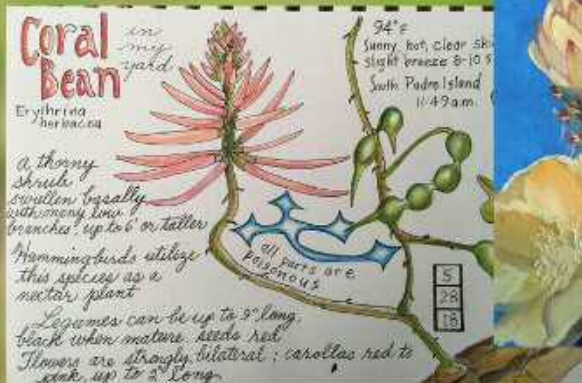 Coral
Bean
in
my
yard
Erythrina
herbacea
94°F
Sunny, hot, clear
slight breeze 8-10
South Padre Island
11:49 a.m.
a thorny
shrub
swollen basally
with many low
branches. up to 6' or taller
Hummingbirds utilize
this species as a
nectar plant
all parts are
poisonous
5
28
18
Legumes can be up to 9" long,
black when mature seeds red
Flowers are strongly bilateral; corollas red to
pink up to 2" long